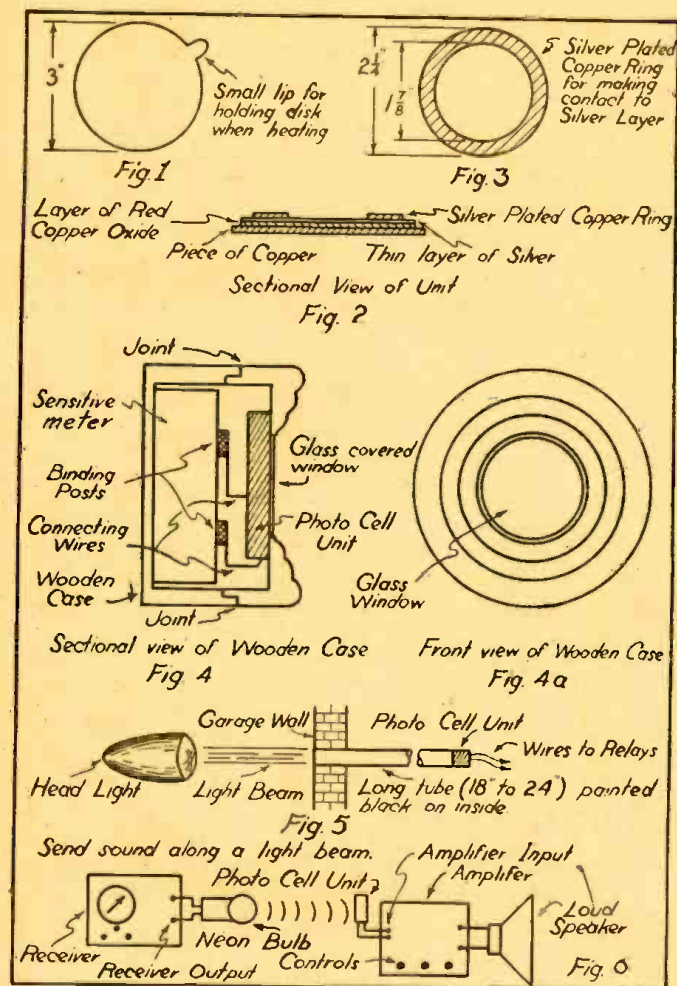 3"
Small lip for
holding disk
when heating
Fig. 1
2 1/4"
1 7/8"
Silver Plated
Copper Ring
for making
contact to
Silver Layer
Fig. 3
Layer of Red
Copper Oxide
Silver Plated Copper Ring
Piece of Copper
Thin layer of Silver
Sectional View of Unit
Fig. 2
Joint
Sensitive
meter
Binding
Posts
Connecting
Wires
Wooden
Case
Joint
Glass covered
window
Photo Cell
Unit
Sectional view of Wooden Case
Fig 4
Glass
Window
Front view of Wooden Case
Fig. 4a
Garage Wall
Photo Cell Unit
Wires to Relays
Head Light
Light Beam
Long tube (18" to 24") painted
black on inside.
Fig. 5
Send sound along a light beam.
Photo Cell Unit
Amplifier Input
Amplifer
Receiver
Receiver Output
Neon Bulb
Controls
Loud
Speaker
Fig. 6